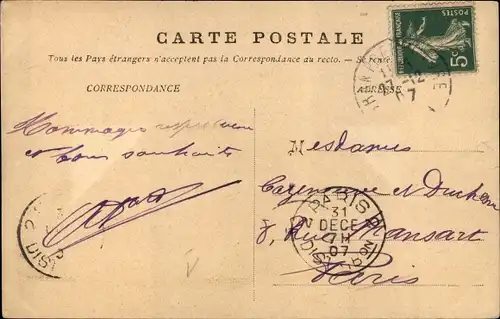 CARTE POSTALE
Tous les Pays étrangers n'acceptent pas la Correspondance au recto. —
CORRESPONDANCE
ADRESSE
POSTES
5c
Hommages respectueux
et bons souhaits
Mesdames
et
8, Rue Mansart
Paris
PARIS
31
DECE
7H
07
DIS